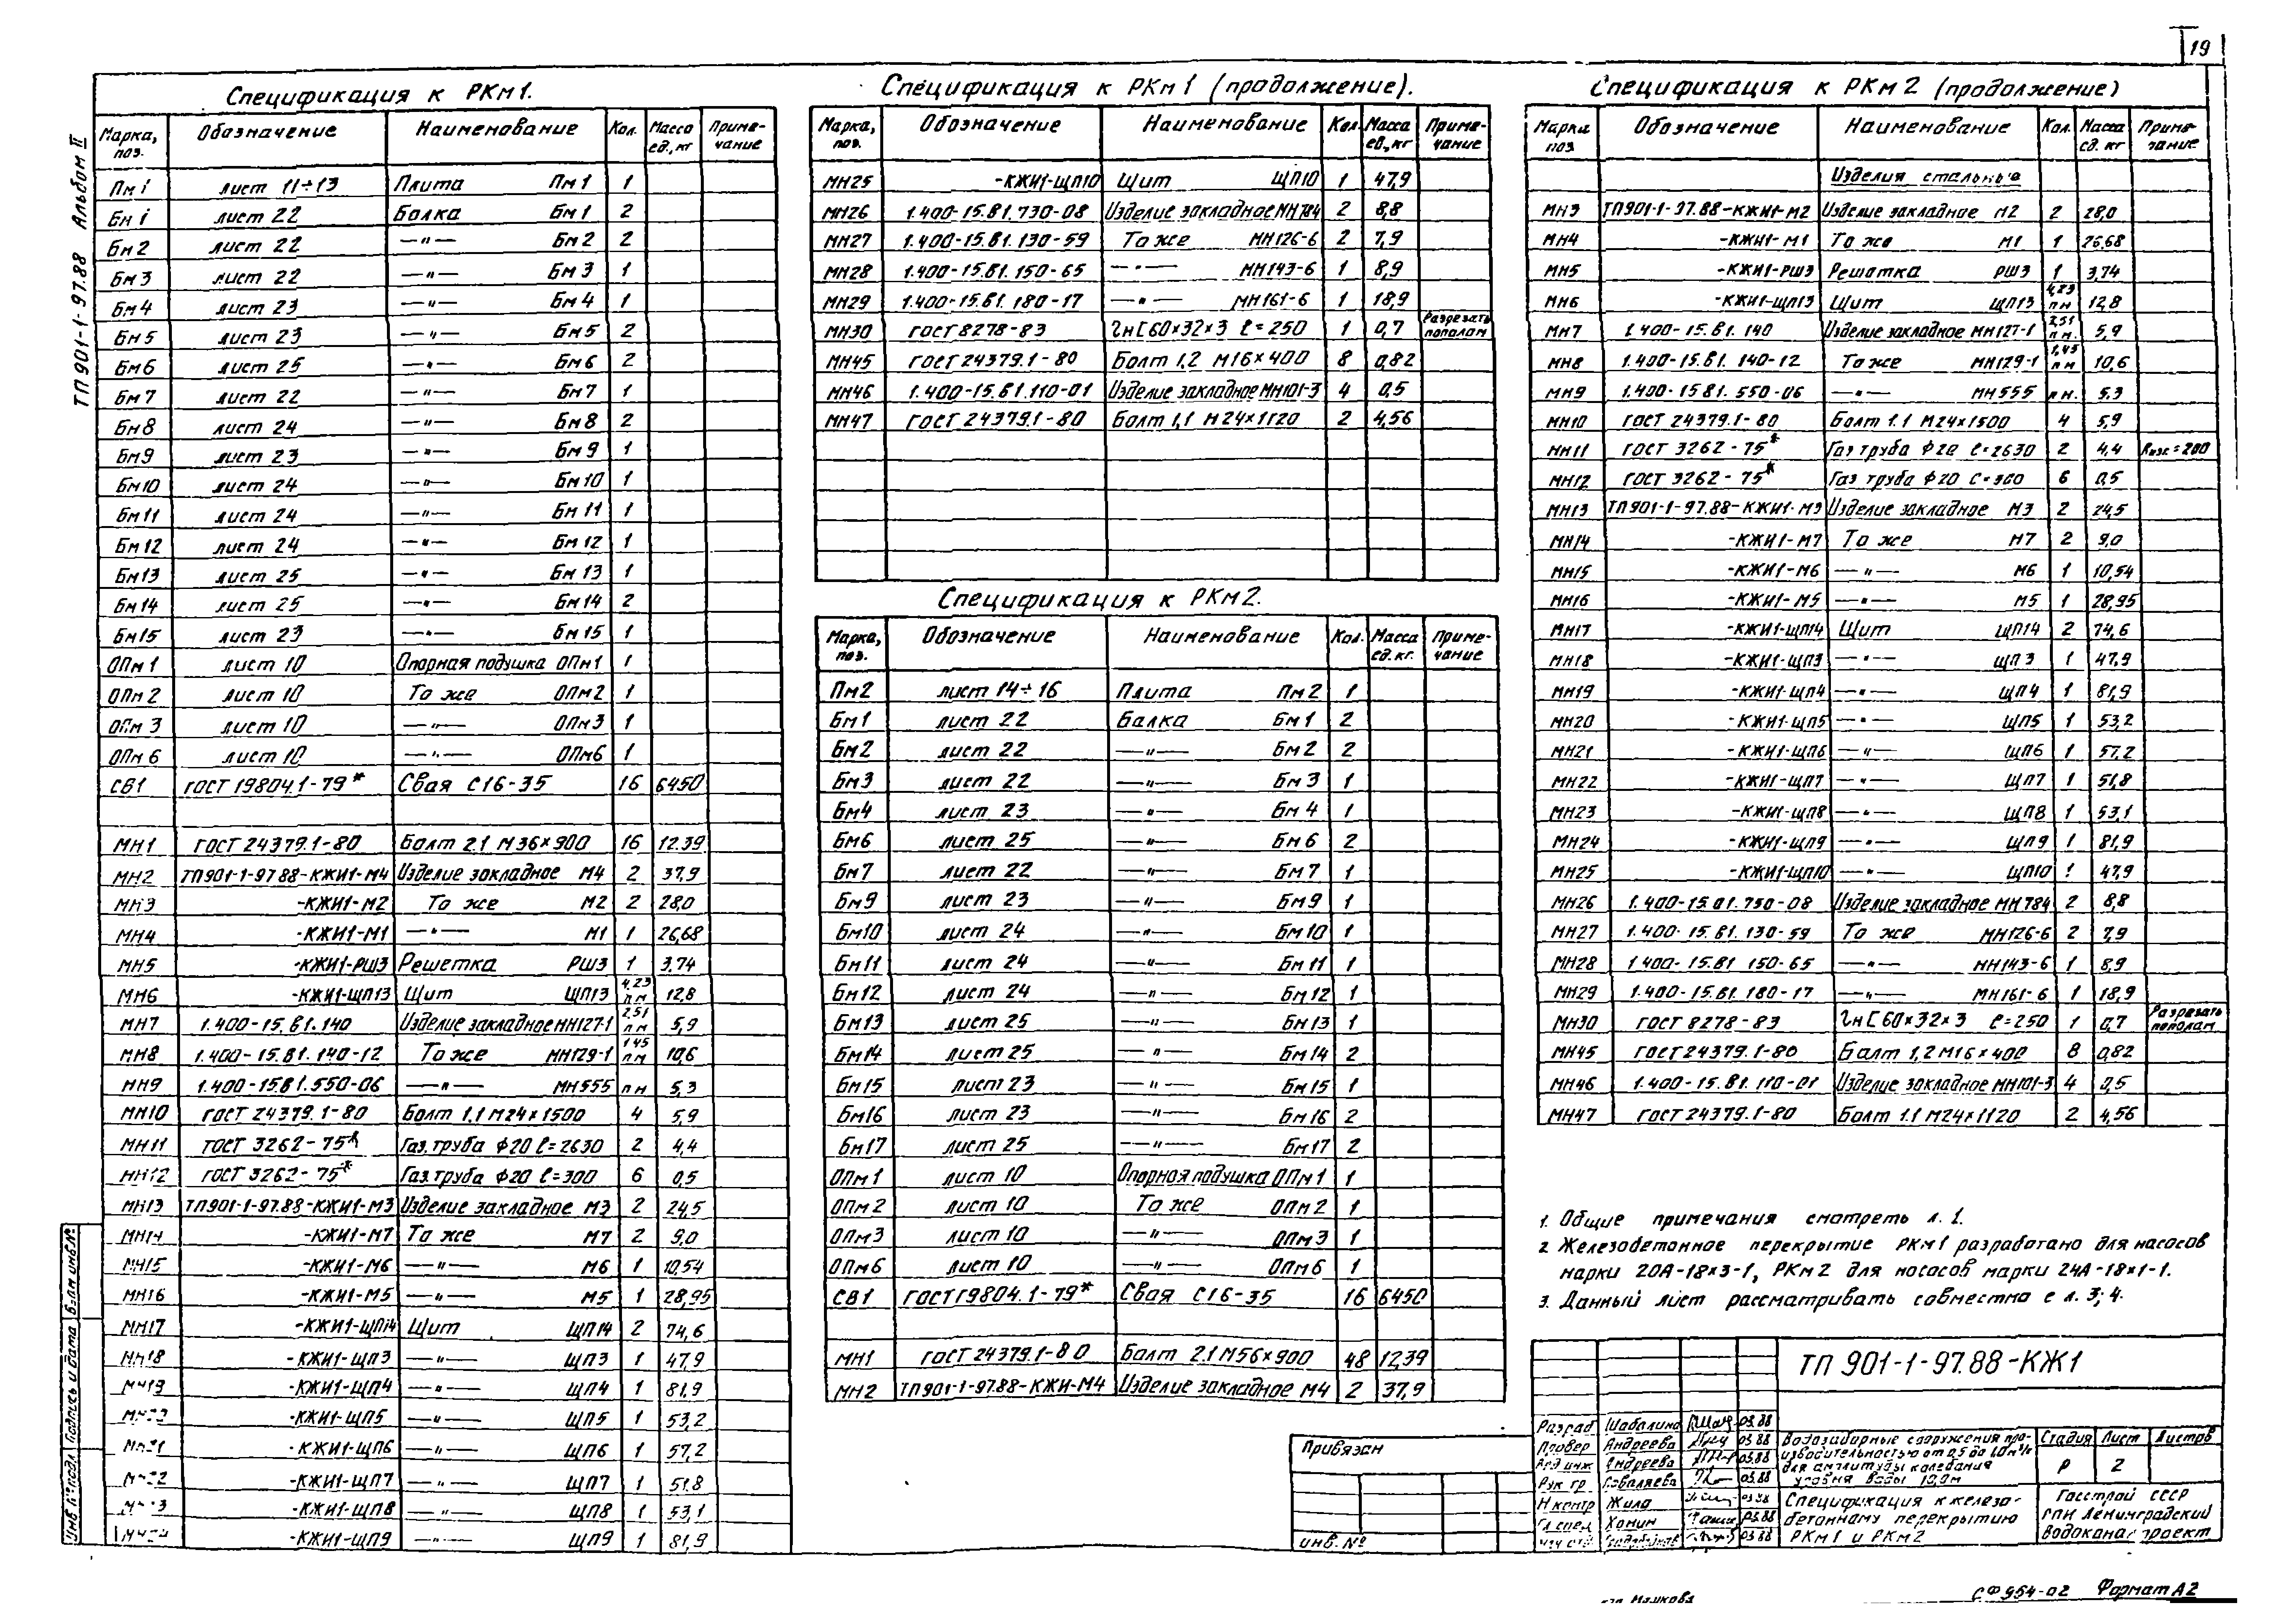 19
ТП 901-1-97.88 Альбом II
Спецификация к РКм1.
Марка, поз. Обозначение Наименование Кол. Масса ед., кг Приме-чание
Пм1 лист 11÷13 Плита Пм1 1
Бм1 лист 22 Балка Бм1 2
Бм2 лист 22 —"— Бм2 2
Бм3 лист 22 —"— Бм3 1
Бм4 лист 23 —"— Бм4 1
Бм5 лист 23 —"— Бм5 2
Бм6 лист 25 —"— Бм6 2
Бм7 лист 22 —"— Бм7 1
Бм8 лист 24 —"— Бм8 2
Бм9 лист 23 —"— Бм9 1
Бм10 лист 24 —"— Бм10 1
Бм11 лист 24 —"— Бм11 1
Бм12 лист 24 —"— Бм12 1
Бм13 лист 25 —"— Бм13 1
Бм14 лист 25 —"— Бм14 2
Бм15 лист 23 —"— Бм15 1
ОПм1 лист 10 Опорная подушка ОПм1 1
ОПм2 лист 10 То же ОПм2 1
ОПм3 лист 10 —"— ОПм3 1
ОПм6 лист 10 —"— ОПм6 1
СВ1 ГОСТ 19804.1-79* Свая С16-35 16 6450
МН1 ГОСТ 24379.1-80 Болт 2.1 М36×900 16 12.39
МН2 ТП901-1-97.88-КЖИ1-М4 Изделие закладное М4 2 37,9
МН3 -КЖИ1-М2 То же М2 2 28,0
МН4 -КЖИ1-М1 —"— М1 1 26,68
МН5 -КЖИ1-РШ3 Решетка РШ3 1 3.74
МН6 -КЖИ1-ЩП13 Щит ЩП13 4,23 п м 12,8
МН7 1.400-15.В1.140 Изделие закладное МН127-1 2,51 п м 5,9
МН8 1.400-15.В1.140-12 То же МН129-1 1 45 п м 10,6
МН9 1.400-15.В1.550-06 —"— МН555 п м 5,3
МН10 ГОСТ 24379.1-80 Болт 1.1 М24×1500 4 5,9
МН11 ГОСТ 3262-75* Газ. труба Ф20 ℓ=2630 2 4,4
МН12 ГОСТ 3262-75* Газ. труба Ф20 ℓ=300 6 0,5
МН13 ТП901-1-97.88-КЖИ1-М3 Изделие закладное М3 2 24,5
МН14 -КЖИ1-М7 То же М7 2 9,0
МН15 -КЖИ1-М6 —"— М6 1 10,54
МН16 -КЖИ1-М5 —"— М5 1 28,95
МН17 -КЖИ1-ЩП14 Щит ЩП14 2 74,6
МН18 -КЖИ1-ЩП3 —"— ЩП3 1 47,9
МН19 -КЖИ1-ЩП4 —"— ЩП4 1 81,9
-КЖИ1-ЩП5 —"— ЩП5 1 53,2
-КЖИ1-ЩП6 —"— ЩП6 1 57,2
-КЖИ1-ЩП7 —"— ЩП7 1 51.8
-КЖИ1-ЩП8 —"— ЩП8 1 53,1
-КЖИ1-ЩП9 —"— ЩП9 1 81,9
Спецификация к РКм1 (продолжение).
Марка, поз. Обозначение Наименование Кол. Масса ед., кг Приме-чание
МН25 -КЖИ1-ЩП10 Щит ЩП10 1 47,9
МН26 1.400-15.В1.730-08 Изделие закладное МН784 2 8,8
МН27 1.400-15.В1.130-59 То же МН126-6 2 7,9
МН28 1.400-15.В1.150-65 —"— МН143-6 1 8,9
МН29 1.400-15.В1.180-17 —"— МН161-6 1 18,9
МН30 ГОСТ 8278-83 Гн[60×32×3 ℓ=250 1 0,7 Разрезать пополам
МН45 ГОСТ 24379.1-80 Болт 1,2 М16×400 8 0,82
МН46 1.400-15.В1.110-01 Изделие закладное МН101-3 4 0,5
МН47 ГОСТ 24379.1-80 Болт 1,1 М24×1120 2 4,56
Спецификация к РКм2.
Марка, поз. Обозначение Наименование Кол. Масса ед. кг. Приме-чание
Пм2 лист 14÷16 Плита Пм2 1
Бм1 лист 22 Балка Бм1 2
Бм2 лист 22 —"— Бм2 2
Бм3 лист 22 —"— Бм3 1
Бм4 лист 23 —"— Бм4 1
Бм6 лист 25 —"— Бм6 2
Бм7 лист 22 —"— Бм7 1
Бм9 лист 23 —"— Бм9 1
Бм10 лист 24 —"— Бм10 1
Бм11 лист 24 —"— Бм11 1
Бм12 лист 24 —"— Бм12 1
Бм13 лист 25 —"— Бм13 1
Бм14 лист 25 —"— Бм14 2
Бм15 лист 23 —"— Бм15 1
Бм16 лист 23 —"— Бм16 2
Бм17 лист 25 —"— Бм17 2
ОПм1 лист 10 Опорная подушка ОПм1 1
ОПм2 лист 10 То же ОПм2 1
ОПм3 лист 10 —"— ОПм3 1
ОПм6 лист 10 —"— ОПм6 1
СВ1 ГОСТ 19804.1-79* Свая С16-35 16 6450
МН1 ГОСТ 24379.1-80 Болт 2.1 М56×900 48 12,39
МН2 ТП901-1-97.88-КЖИ-М4 Изделие закладное М4 2 37,9
Спецификация к РКм2 (продолжение)
Марка поз Обозначение Наименование Кол. Масса ед. кг Приме-чание
Изделия стальные
МН3 ТП901-1-97.88-КЖИ1-М2 Изделие закладное М2 2 28,0
МН4 -КЖИ1-М1 То же М1 1 26,68
МН5 -КЖИ1-РШ3 Решетка РШ3 1 3,74
МН6 -КЖИ1-ЩП13 Щит ЩП13 4,23 п м 12,8
МН7 1.400-15.В1.140 Изделие закладное МН127-1 2,51 п м. 5,9
МН8 1.400-15.В1.140-12 То же МН129-1 1,45 п м 10,6
МН9 1.400-15В1.550-06 —"— МН555 п м. 5.3
МН10 ГОСТ 24379.1-80 Болт 1.1 М24×1500 4 5,9
МН11 ГОСТ 3262-75* Газ труба Ф20 ℓ=2630 2 4,4 Rизг.=200
МН12 ГОСТ 3262-75* Газ труба Ф20 ℓ=300 6 0,5
МН13 ТП901-1-97.88-КЖИ1-М3 Изделие закладное М3 2 24,5
МН14 -КЖИ1-М7 То же М7 2 9,0
МН15 -КЖИ1-М6 —"— М6 1 10,54
МН16 -КЖИ1-М5 —"— М5 1 28,95
МН17 -КЖИ1-ЩП14 Щит ЩП14 2 74,6
МН18 -КЖИ1-ЩП3 —"— ЩП3 1 47,9
МН19 -КЖИ1-ЩП4 —"— ЩП4 1 81,9
МН20 -КЖИ1-ЩП5 —"— ЩП5 1 53,2
МН21 -КЖИ1-ЩП6 —"— ЩП6 1 57,2
МН22 -КЖИ1-ЩП7 —"— ЩП7 1 51,8
МН23 -КЖИ1-ЩП8 —"— ЩП8 1 53,1
МН24 -КЖИ1-ЩП9 —"— ЩП9 1 81,9
МН25 -КЖИ1-ЩП10 —"— ЩП10 1 47,9
МН26 1.400-15.В1.730-08 Изделие закладное МН784 2 8,8
МН27 1.400-15.В1.130-59 То же МН126-6 2 7,9
МН28 1.400-15.В1 150-65 —"— МН143-6 1 8,9
МН29 1.400-15.В1.180-17 —"— МН161-6 1 18,9
МН30 ГОСТ 8278-83 Гн[60×32×3 ℓ=250 1 0,7 Разрезать пополам
МН45 ГОСТ 24379.1-80 Болт 1,2 М16×400 8 0,82
МН46 1.400-15.В1.110-01 Изделие закладное МН101-3 4 0,5
МН47 ГОСТ 24379.1-80 Болт 1.1 М24×1120 2 4,56
1. Общие примечания смотреть л. 1.
2. Железобетонное перекрытие РКм1 разработано для насосов
марки 20А-18×3-1, РКм2 для насосов марки 24А-18×1-1.
3. Данный лист рассматривать совместно с л. 3; 4.
ТП 901-1-97.88-КЖ1
Разраб Шабалина 03.88
Провер Андреева 03.88
Вед инж Андреева 03.88
Рук гр Коваляева 03.88
Н контр Жила 03.88
Гл спец Хонин 03.88
03.88
Водозаборные сооружения про-
изводительностью от 0,5 до 1,0 м³/с
для амплитуды колебания
уровня воды 10,0м
Стадия Лист Листов
Р 2
Спецификация к железо-
бетонному перекрытию
РКм1 и РКм2
Госстрой СССР
ГПИ Ленинградский
Водоканалпроект
Привязан
Инв. №
Инв № подл Подпись и дата Взам инв №
СФ 954-02 Формат А2